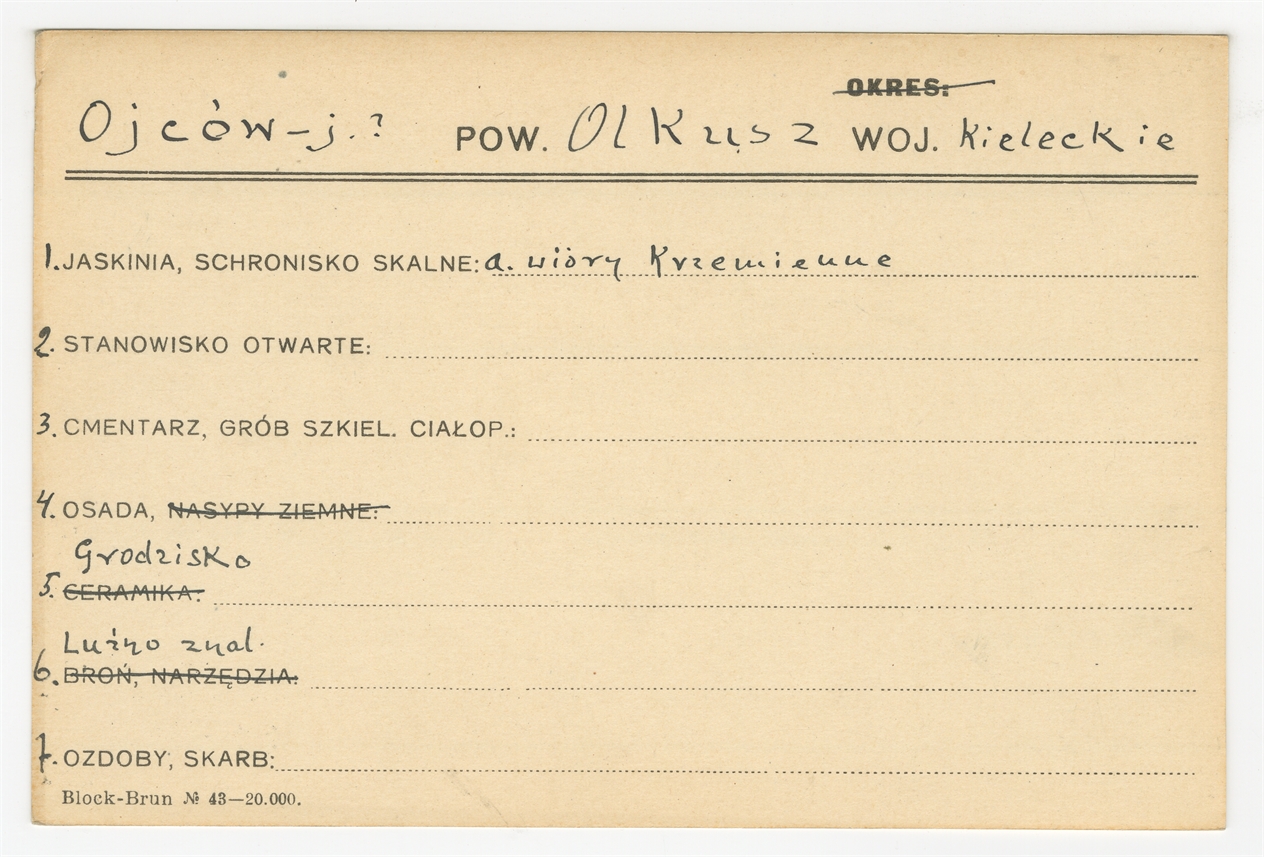 OKRES:
Ojców-j.? POW. Olkusz WOJ. Kieleckie
1. JASKINIA, SCHRONISKO SKALNE: a. wióry Krzemienne
2. STANOWISKO OTWARTE:
3. CMENTARZ, GRÓB SZKIEL. CIAŁOP.:
4. OSADA, NASYPY ZIEMNE:
Grodzisko
5. CERAMIKA:
Luźno znal.
6. BROŃ, NARZĘDZIA:
7. OZDOBY, SKARB:
Block-Brun № 43—20.000.